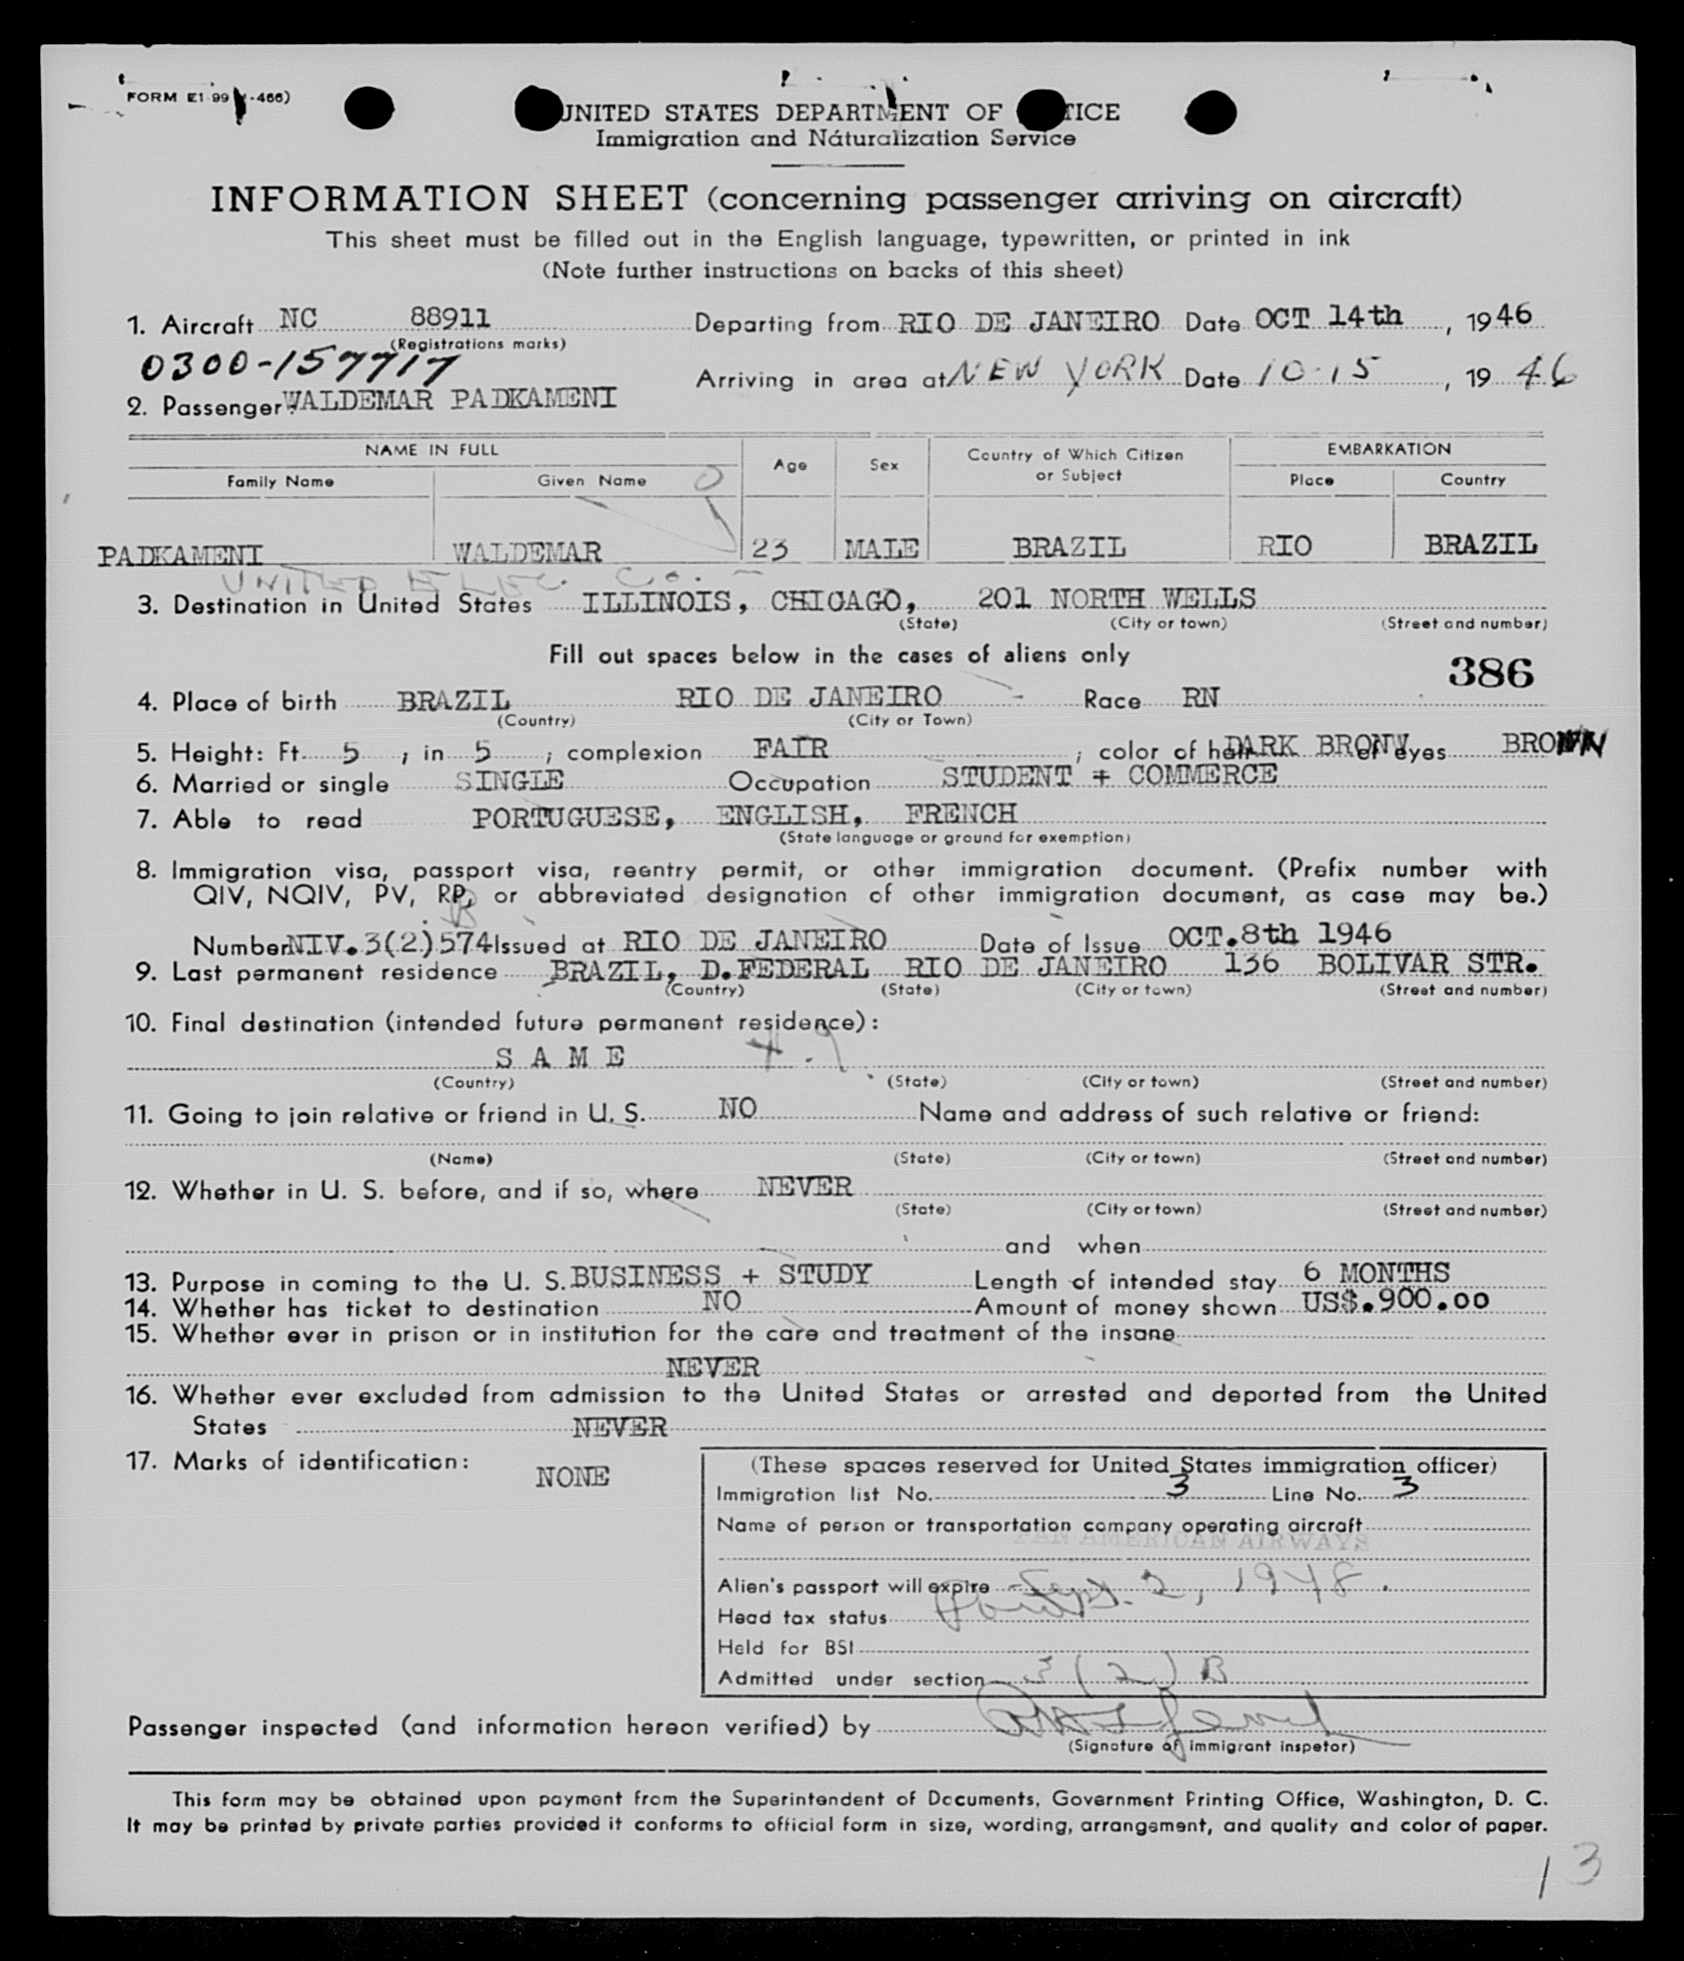 FORM E1 99 -466)
UNITED STATES DEPARTMENT OF TICE
Immigration and Naturalization Service
INFORMATION SHEET (concerning passenger arriving on aircraft)
This sheet must be filled out in the English language, typewritten, or printed in ink
(Note further instructions on backs of this sheet)
1. Aircraft NC 88911 Departing from RIO DE JANEIRO Date OCT 14th, 1946
(Registrations marks)
0300-157717
Arriving in area at NEW YORK Date 10-15, 1946
2. Passenger WALDEMAR PADKAMENI
NAME IN FULL Age Sex Country of Which Citizen or Subject EMBARKATION
Family Name Given Name Place Country
PADKAMENI WALDEMAR 23 MALE BRAZIL RIO BRAZIL
UNITED ELEC. Co. -
3. Destination in United States ILLINOIS, CHICAGO, 201 NORTH WELLS
(State) (City or town) (Street and number)
Fill out spaces below in the cases of aliens only
386
4. Place of birth BRAZIL RIO DE JANEIRO - Race RN
(Country) (City or Town)
5. Height: Ft. 5, in 5; complexion FAIR; color of hair DARK BRONW of eyes BROWN
6. Married or single SINGLE Occupation STUDENT + COMMERCE
7. Able to read PORTUGUESE, ENGLISH, FRENCH
(State language or ground for exemption)
8. Immigration visa, passport visa, reentry permit, or other immigration document. (Prefix number with
QIV, NQIV, PV, RP, or abbreviated designation of other immigration document, as case may be.)
B
Number NIV.3(2)574 Issued at RIO DE JANEIRO Date of Issue OCT.8th 1946
9. Last permanent residence BRAZIL, D.FEDERAL RIO DE JANEIRO 136 BOLIVAR STR.
(Country) (State) (City or town) (Street and number)
10. Final destination (intended future permanent residence):
S A M E
(Country) (State) (City or town) (Street and number)
11. Going to join relative or friend in U. S. NO Name and address of such relative or friend:
(Name) (State) (City or town) (Street and number)
12. Whether in U. S. before, and if so, where NEVER
(State) (City or town) (Street and number)
and when
13. Purpose in coming to the U. S. BUSINESS + STUDY Length of intended stay 6 MONTHS
14. Whether has ticket to destination NO Amount of money shown US$.900.00
15. Whether ever in prison or in institution for the care and treatment of the insane
NEVER
16. Whether ever excluded from admission to the United States or arrested and deported from the United
States NEVER
17. Marks of identification: NONE
(These spaces reserved for United States immigration officer)
Immigration list No. 3 Line No. 3
Name of person or transportation company operating aircraft
PAN AMERICAN AIRWAYS
Alien's passport will expire Sept. 2, 1948.
Head tax status
Held for BSI
Admitted under section 3(2)B
Passenger inspected (and information hereon verified) by
(Signature of immigrant inspetor)
This form may be obtained upon payment from the Superintendent of Documents, Government Printing Office, Washington, D. C.
It may be printed by private parties provided it conforms to official form in size, wording, arrangement, and quality and color of paper.
13